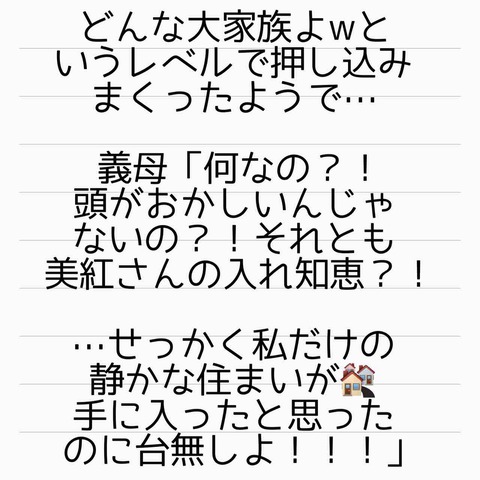 どんな大家族よwと
いうレベルで押し込み
まくったようで…
義母「何なの？！
頭がおかしいんじゃ
ないの？！それとも
美紅さんの入れ知恵？！
…せっかく私だけの
静かな住まいが🏘️
手に入ったと思った
のに台無しよ！！！」